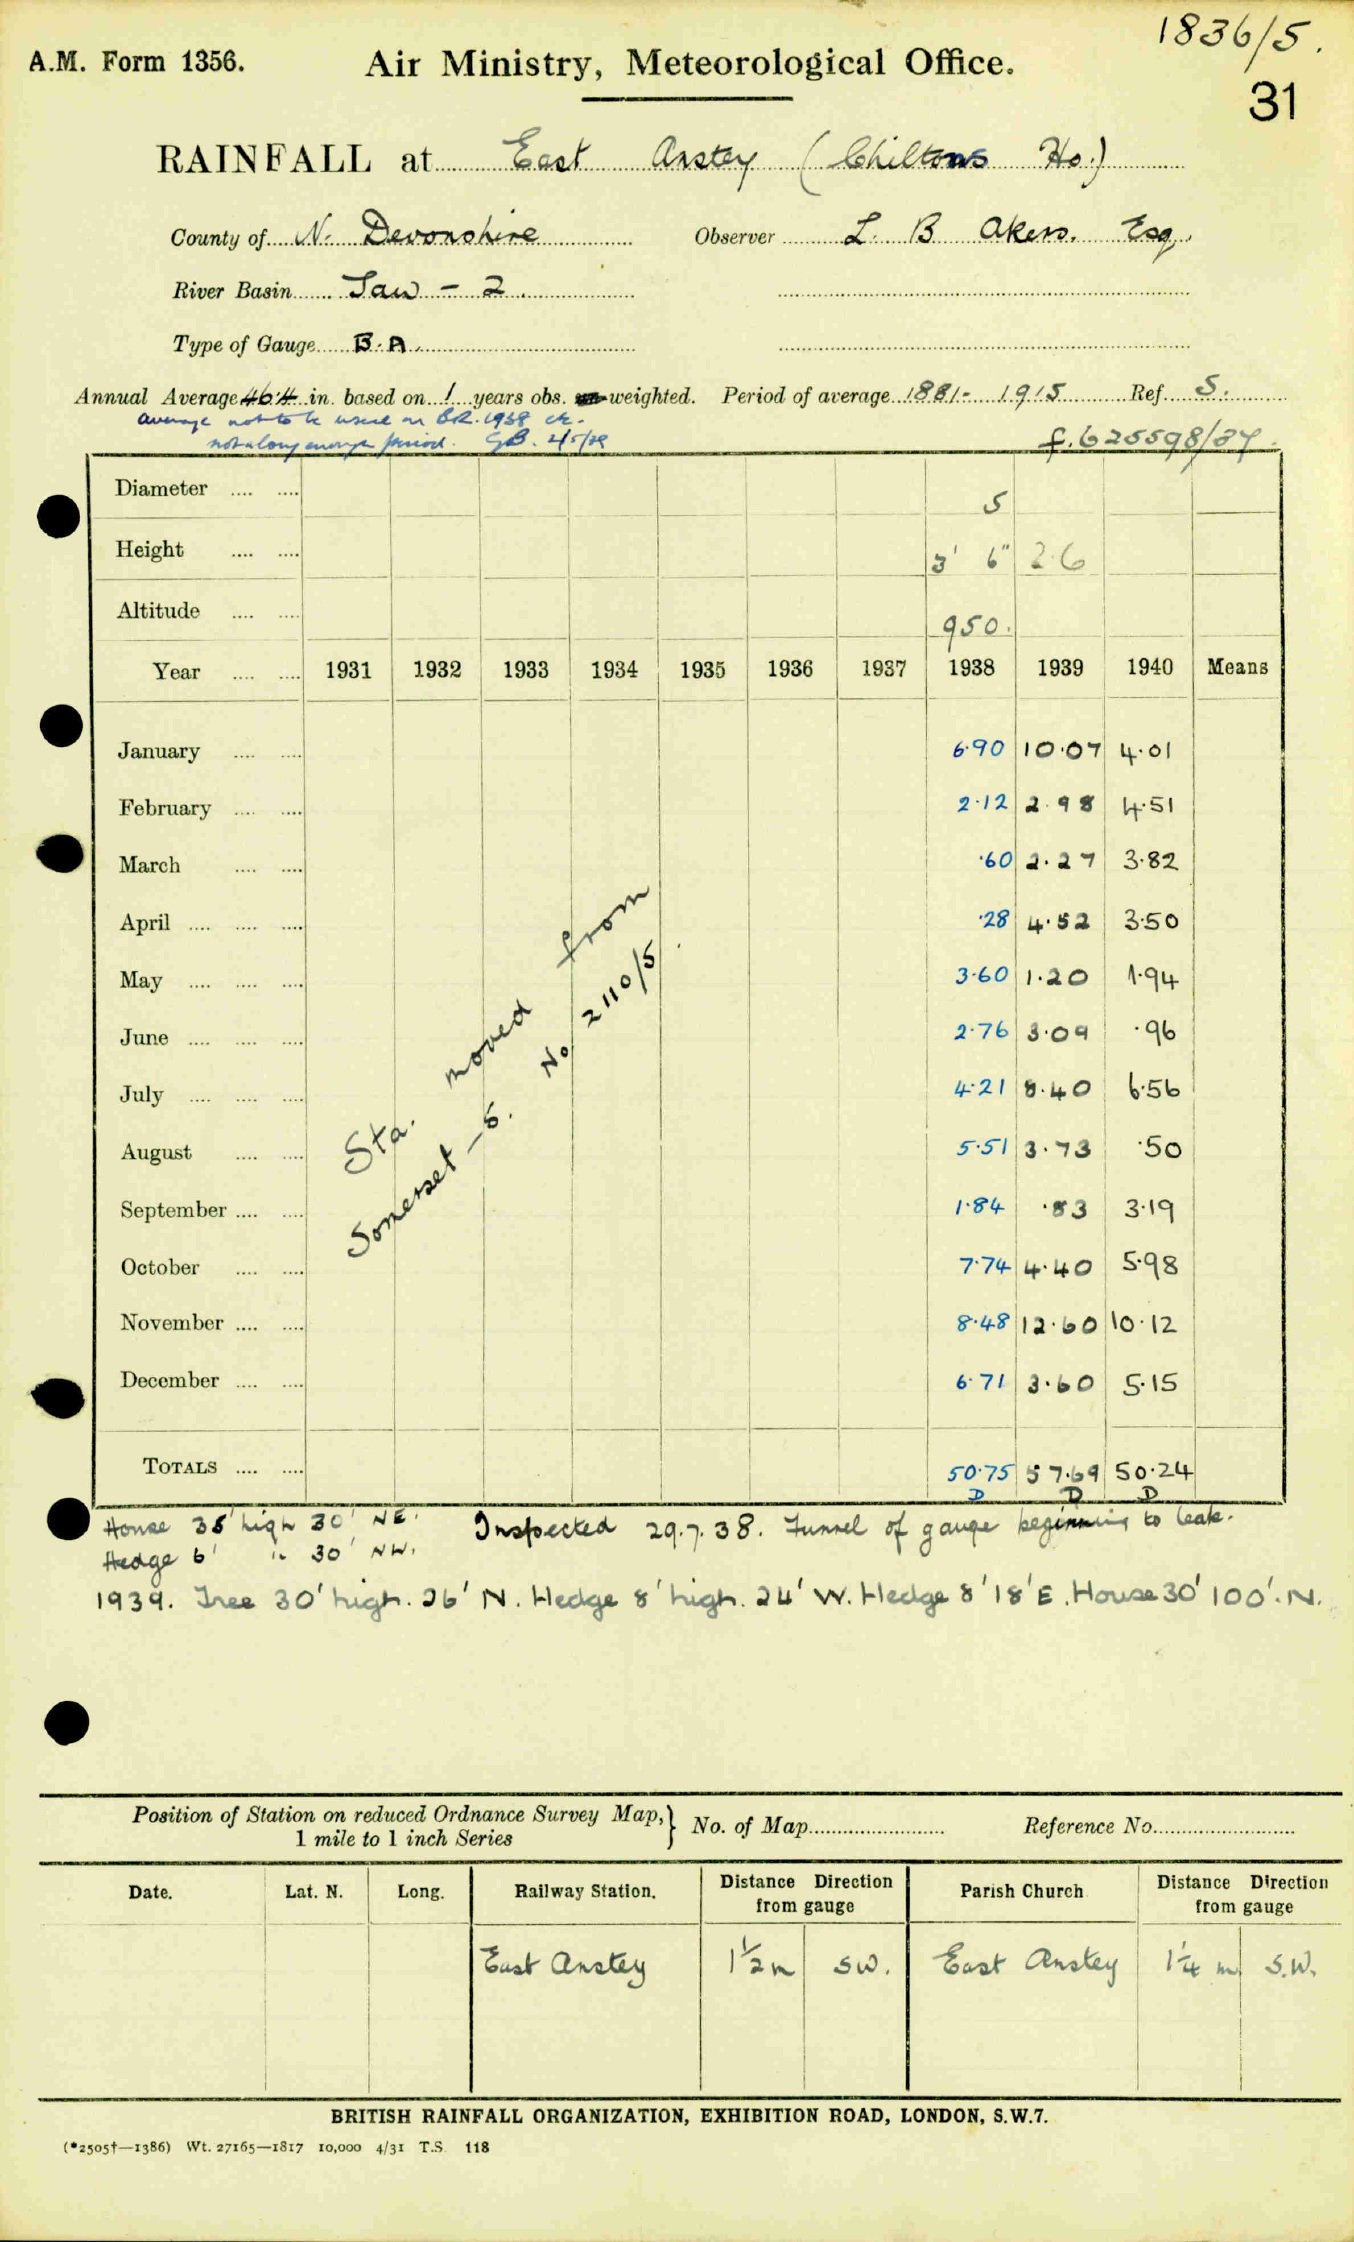 1836/5.
A.M. Form 1356. Air Ministry, Meteorological Office.
31
RAINFALL at East Anstey (Chiltons Ho.)
County of N. Devonshire Observer L. B Akers. Esq.
River Basin Taw - 2.
Type of Gauge B.A.
Annual Average 46.4 in. based on 1 years obs. weighted. Period of average 1881- 1915 Ref. S.
average not to be used in B.R. 1938 etc.
not a long enough period. GB. 2/5/39
f.625598/37.
Diameter .... .... 5
Height .... .... 3' 6" 2.6
Altitude .... .... 950.
Year .... .... 1931 1932 1933 1934 1935 1936 1937 1938 1939 1940 Means
January .... .... 6.90 10.07 4.01
February .... .... 2.12 2.98 4.51
March .... .... .60 2.27 3.82
April .... .... .... .28 4.52 3.50
May .... .... .... 3.60 1.20 1.94
June .... .... .... 2.76 3.09 .96
July .... .... .... 4.21 8.40 6.56
August .... .... 5.51 3.73 .50
September .... .... 1.84 .83 3.19
October .... .... 7.74 4.40 5.98
November .... .... 8.48 12.60 10.12
December .... .... 6.71 3.60 5.15
Sta. moved from
Somerset - S. No 2110/5.
TOTALS .... .... 50.75 57.69 50.24
D D D
House 35' high 30' NE. Inspected 29.7.38. Funnel of gauge beginning to leak.
Hedge 6' " 30' NW.
1939. Tree 30' high. 26' N. Hedge 8' high. 24' W. Hedge 8' 18' E. House 30' 100'. N.
Position of Station on reduced Ordnance Survey Map,} No. of Map Reference No.
1 mile to 1 inch Series
Date. Lat. N. Long. Railway Station. Distance Direction from gauge Parish Church Distance Direction from gauge
East Anstey 1½ m SW. East Anstey 1¼ m S.W.
BRITISH RAINFALL ORGANIZATION, EXHIBITION ROAD, LONDON, S.W.7.
(*2505†—1386) Wt. 27165—1817 10,000 4/31 T.S. 118